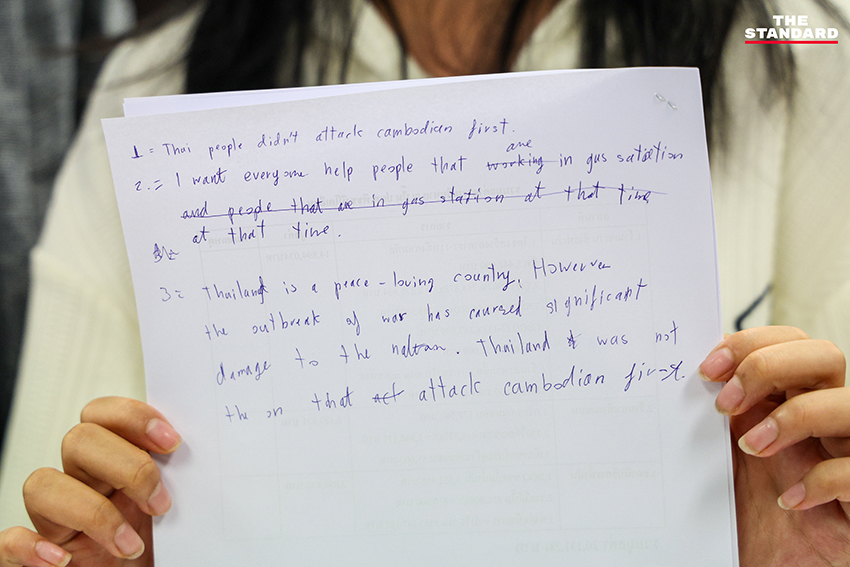 THE
STANDARD
1 = Thai people didn't attack cambodian first.
are
2. = I want everyone help people that working in gas satietion
and people that are in gas station at that time
at that time.
3 = Thailand is a peace-loving country. Howerver
the outbreak of war has caursed significant
damage to the nation. Thailand was not
the on that act attack cambodian first.